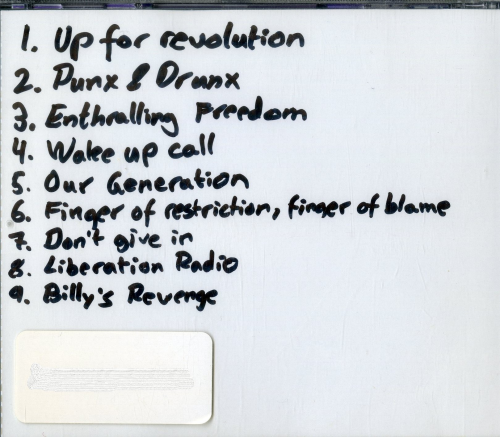 1. Up for revolution
2. Punx & Drunx
3. Enthralling Freedom
4. Wake up call
5. Our Generation
6. Finger of restriction, finger of blame
7. Don't give in
8. Liberation Radio
9. Billy's Revenge